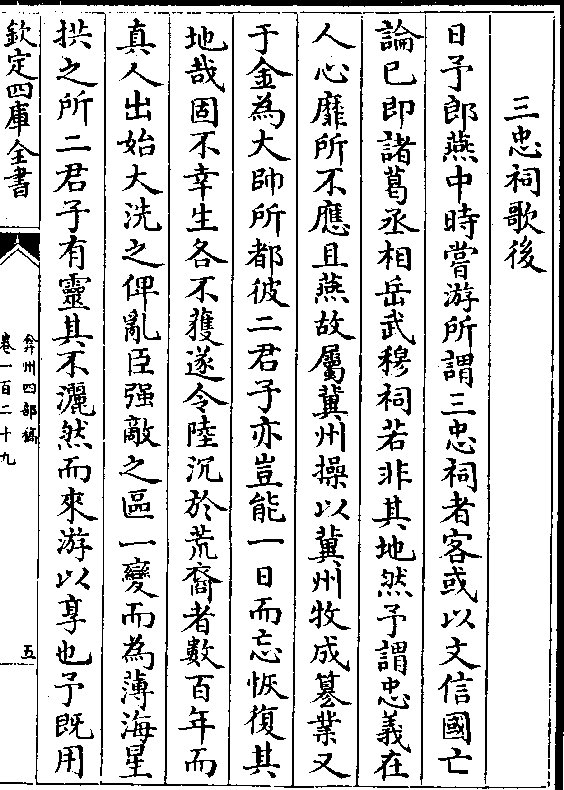 三忠祠歌後
日予郎燕中時嘗游所謂三忠祠者客或以文信國亡
論已即諸葛丞相岳武穆祠若非其地然予謂忠義在
人心靡所不應且燕故屬冀州操以冀州牧成篡業又
于金為大帥所都彼二君子亦豈能一日而忘恢復其
地哉固不幸生各不獲遂令陸沉於荒裔者數百年而
真人出始大洗之俾亂臣强敵之區一變而為薄海星
拱之所二君子有靈其不灑然而來游以享也予既用
欽定四庫全書
弇州四部稿
卷一百二十九
五